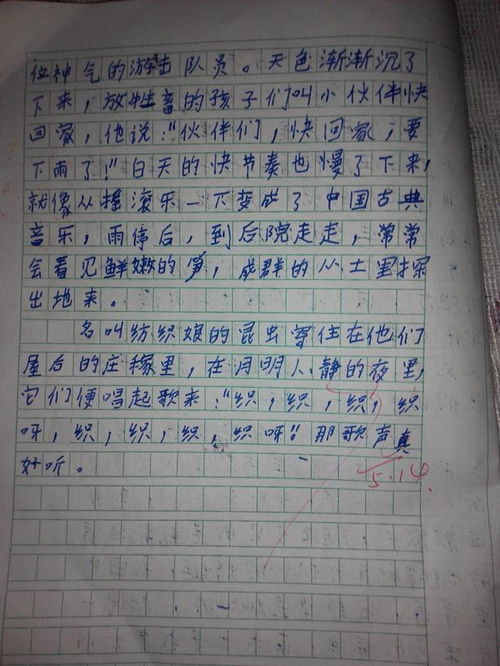 位神气的游击队员。天色渐渐沉了
下来，放牲畜的孩子们叫小伙伴快
回家，他说："伙伴们，快回家，要
下雨了！"白天的快节奏也慢了下来，
就像从摇滚乐一下变成了中国古典
音乐，雨停后，到后院走走，常常
会看见鲜嫩的笋，成群的从土里探
出地来。
名叫纺织娘的昆虫寄住在他们
屋后的庄稼里，在月明人静的夜里，
它们便唱起歌来："织，织，织，织
呀，织，织，织，织呀！"那歌声真
好听。
5.14.